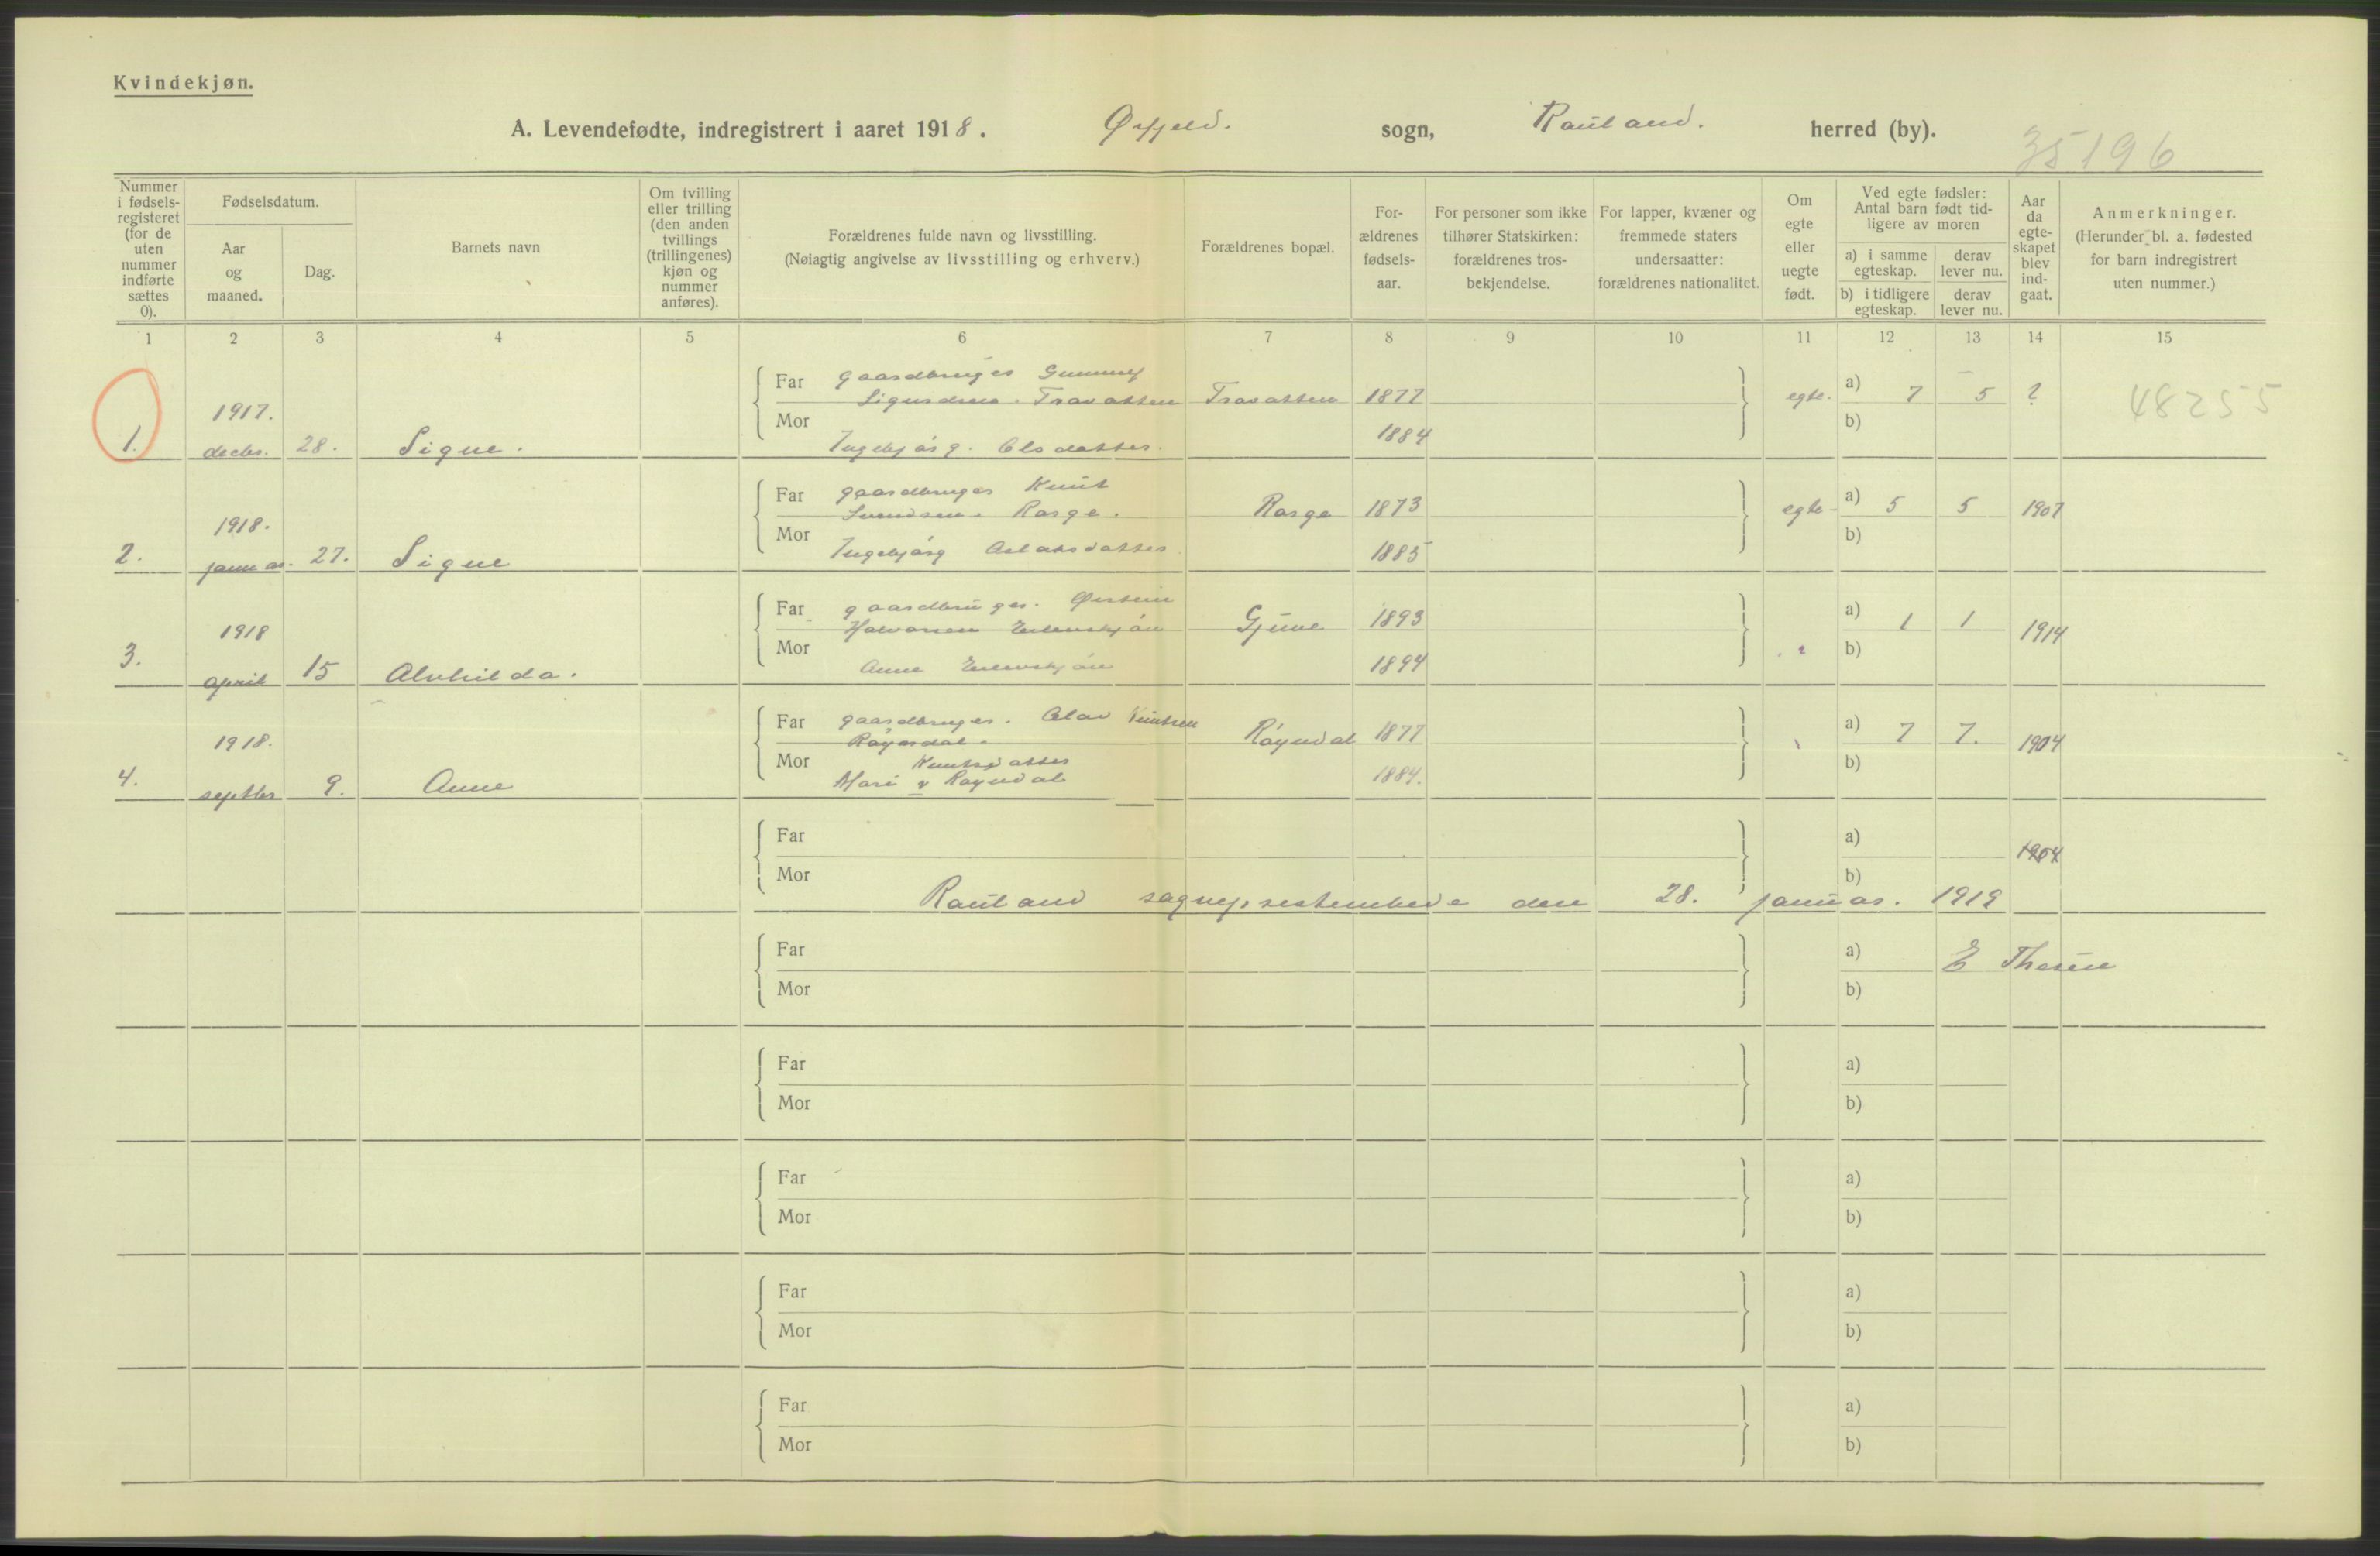 Kvindekjøn.
A. Levendefødte, indregistrert i aaret 1918. Øifjeld. sogn, Rauland. herred (by).
35196
Nummer i fødselsregisteret (for de uten nummer indførte sættes 0).
Fødselsdatum.
Aar og maaned.
Dag.
Barnets navn
Om tvilling eller trilling (den anden tvillings (trillingenes) kjøn og nummer anføres).
Forældrenes fulde navn og livsstilling.
(Nøiagtig angivelse av livsstilling og erhverv.)
Forældrenes bopæl.
Forældrenes fødselsaar.
For personer som ikke tilhører Statskirken: forældrenes trosbekjendelse.
For lapper, kvæner og fremmede staters undersaatter: forældrenes nationalitet.
Om egte eller uegte født.
Ved egte fødsler: Antal barn født tidligere av moren
a) i samme egteskap.
derav lever nu.
b) i tidligere egteskap.
derav lever nu.
Aar da egteskapet blev indgaat.
Anmerkninger.
(Herunder bl. a. fødested for barn indregistrert uten nummer.)
1 2 3 4 5 6 7 8 9 10 11 12 13 14 15
Far gaardbruger Gunnulf
1917. Sigurdsen Travatten Travatten 1877 egte. a) 7 5 ? 48255
Mor b)
1. decbr. 28. Signe. Ingebjørg Olsdatter. 1884
Far gaardbruger Knut
1918. Svendsen Rorge. Rorge 1873 egte a) 5 5 1907
Mor b)
2. januar. 27. Signe Ingebjørg Aslaksdatter 1885
Far gaardbruger. Øistein
1918 Halvorsen Gjuve 1893 a) 1 1 1914
Mor b)
3. april 15 Alvhilda. Anne 1894
Far gaardbruger. Olav Knutsen
1918. Røyndal. Røyndal 1877 a) 7 7. 1904
Mor Knutsdatter b)
4. septbr 9. Anne Mari Røyndal 1884.
Far a) 1904
Mor b)
Rauland sogneprestembede den 28. januar. 1919
Far a) E Thesen
Mor b)
Far a)
Mor b)
Far a)
Mor b)
Far a)
Mor b)
Far a)
Mor b)